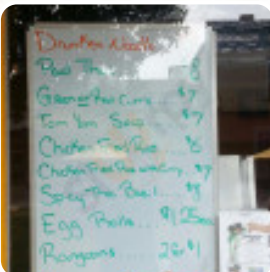 Drunken Noodle
Pad Thai 8
Green or Red Curry $7
Tom Yum Soup $7
Chicken Fried Rice 6
Chicken Fried Rice with Curry $7
Spicy Thai Basil.... $8
Egg Rolls.... $1.25ea
Rangoons.... 2 for $1